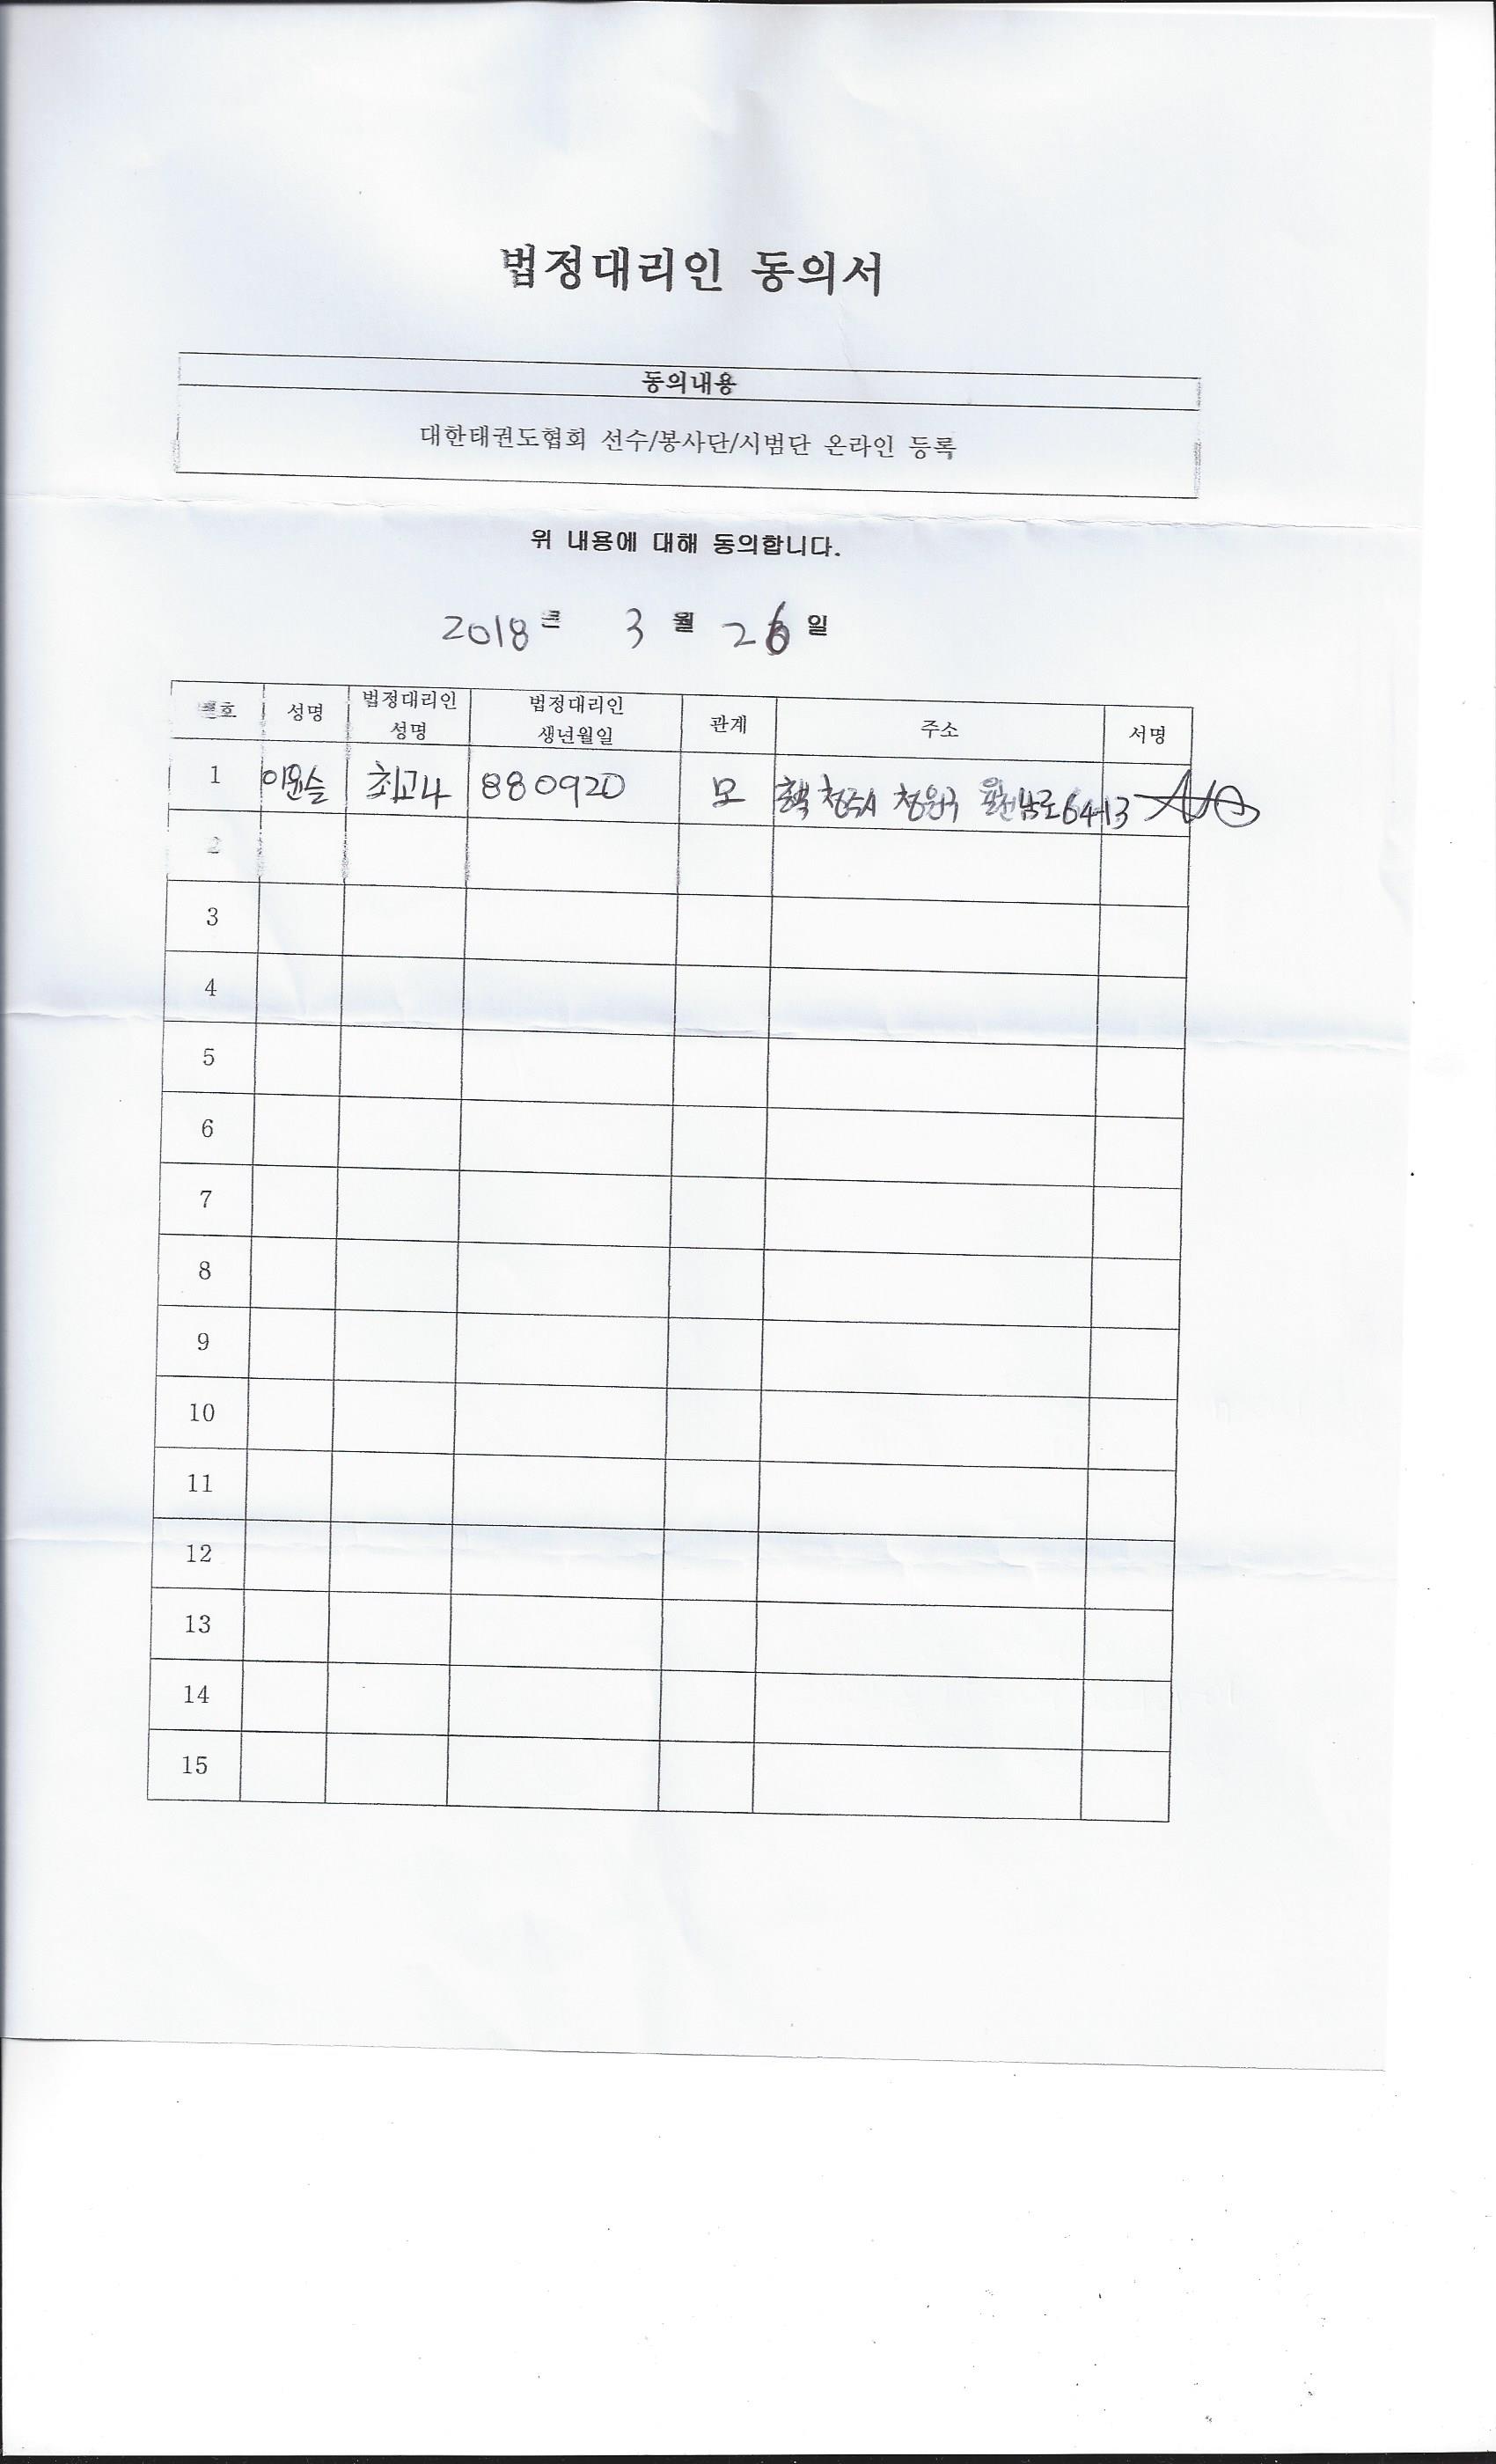 법정대리인 동의서
동의내용
대한태권도협회 선수/봉사단/시범단 온라인 등록
위 내용에 대해 동의합니다.
2018년 3월 26일
번호 성명 법정대리인 성명 법정대리인 생년월일 관계 주소 서명
1 이윤슬 최고나 880920 모 충북 청주시 청원구 남로64-13
2
3
4
5
6
7
8
9
10
11
12
13
14
15